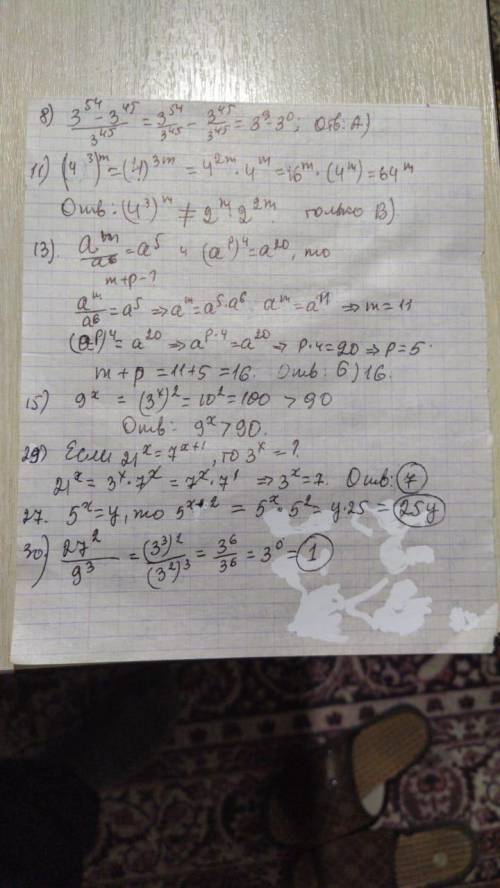 8) (3^54 - 3^45)/3^45 = 3^54/3^45 - 3^45/3^45 = 3^9 - 3^0; Отв: А)
11) (4^3)^m = (4)^3m = 4^2m · 4^m = 16^m · (4^m) = 64^m
Отв: (4^3)^m ≠ 2^m · 2^2m только В)
13. a^m/a^6 = a^5 и (a^p)^4 = a^20, то
m+p-?
a^m/a^6 = a^5 ⇒ a^m = a^5 · a^6 a^m = a^11 ⇒ m = 11
(a^p)^4 = a^20 ⇒ a^p·4 = a^20 ⇒ p·4 = 20 ⇒ p = 5
m+p = 11+5 = 16. Отв: б) 16.
15) 9^x = (3^x)^2 = 10^2 = 100 > 90
Отв: 9^x > 90.
29) Если 21^x = 7^x+1, то 3^x = ?
21^x = 3^x · 7^x = 7^x · 7^1 ⇒ 3^x = 7. Отв: 7
27. 5^x = y, то 5^x+2 = 5^x · 5^2 = y·25 = 25y
30) 27^2/9^3 = (3^3)^2/(3^2)^3 = 3^6/3^6 = 3^0 = 1